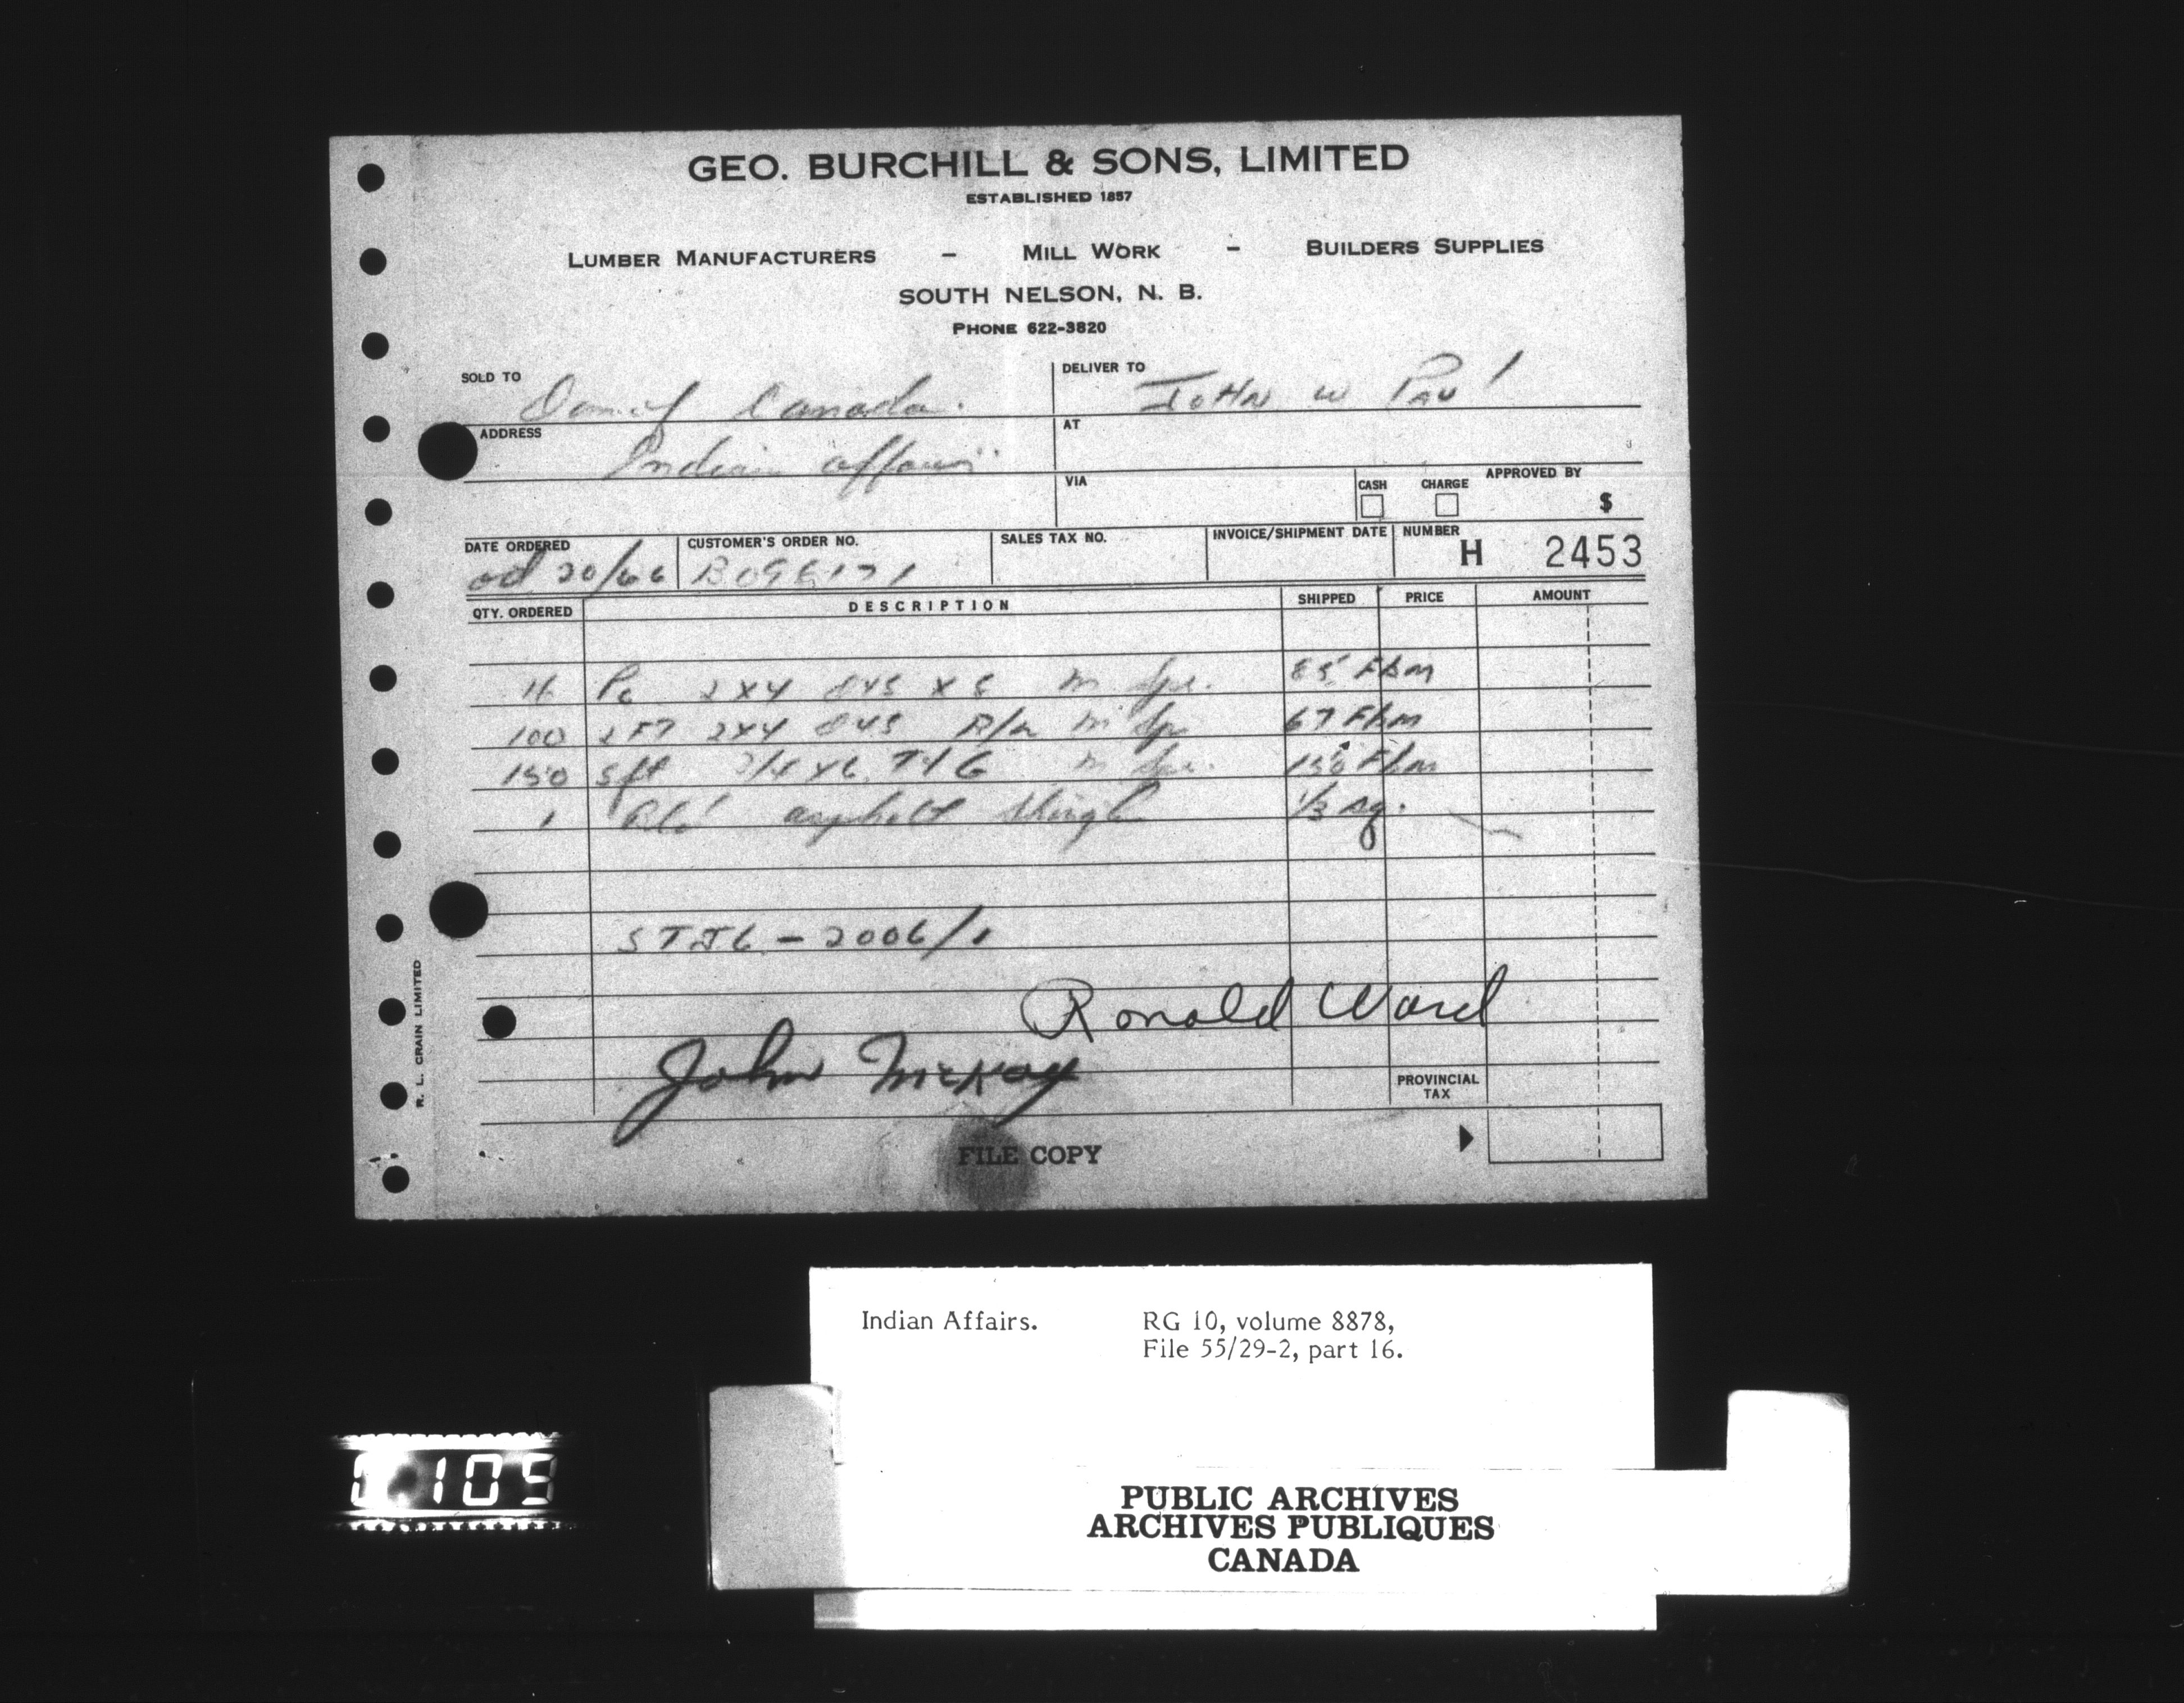 GEO. BURCHILL & SONS, LIMITED
ESTABLISHED 1857
LUMBER MANUFACTURERS – MILL WORK – BUILDERS SUPPLIES
SOUTH NELSON, N. B.
PHONE 622-3820
SOLD TO Canada. DELIVER TO JOHN W PAUL
ADDRESS Indian affairs AT
VIA CASH CHARGE APPROVED BY $
DATE ORDERED CUSTOMER'S ORDER NO. SALES TAX NO. INVOICE/SHIPMENT DATE NUMBER H 2453
20/66
QTY. ORDERED DESCRIPTION SHIPPED PRICE AMOUNT
Pc 2x4 85 Fbm
100 2x4 R/L m 67 Fbm
150 sft 3/4 x 6 T/G m 150 Fbm
1 asphalt shingle 1/3 sq.
2006/1
Ronald Ward
John McKay
PROVINCIAL TAX
FILE COPY
R. L. CRAIN LIMITED
Indian Affairs. RG 10, volume 8878,
File 55/29-2, part 16.
109
PUBLIC ARCHIVES
ARCHIVES PUBLIQUES
CANADA